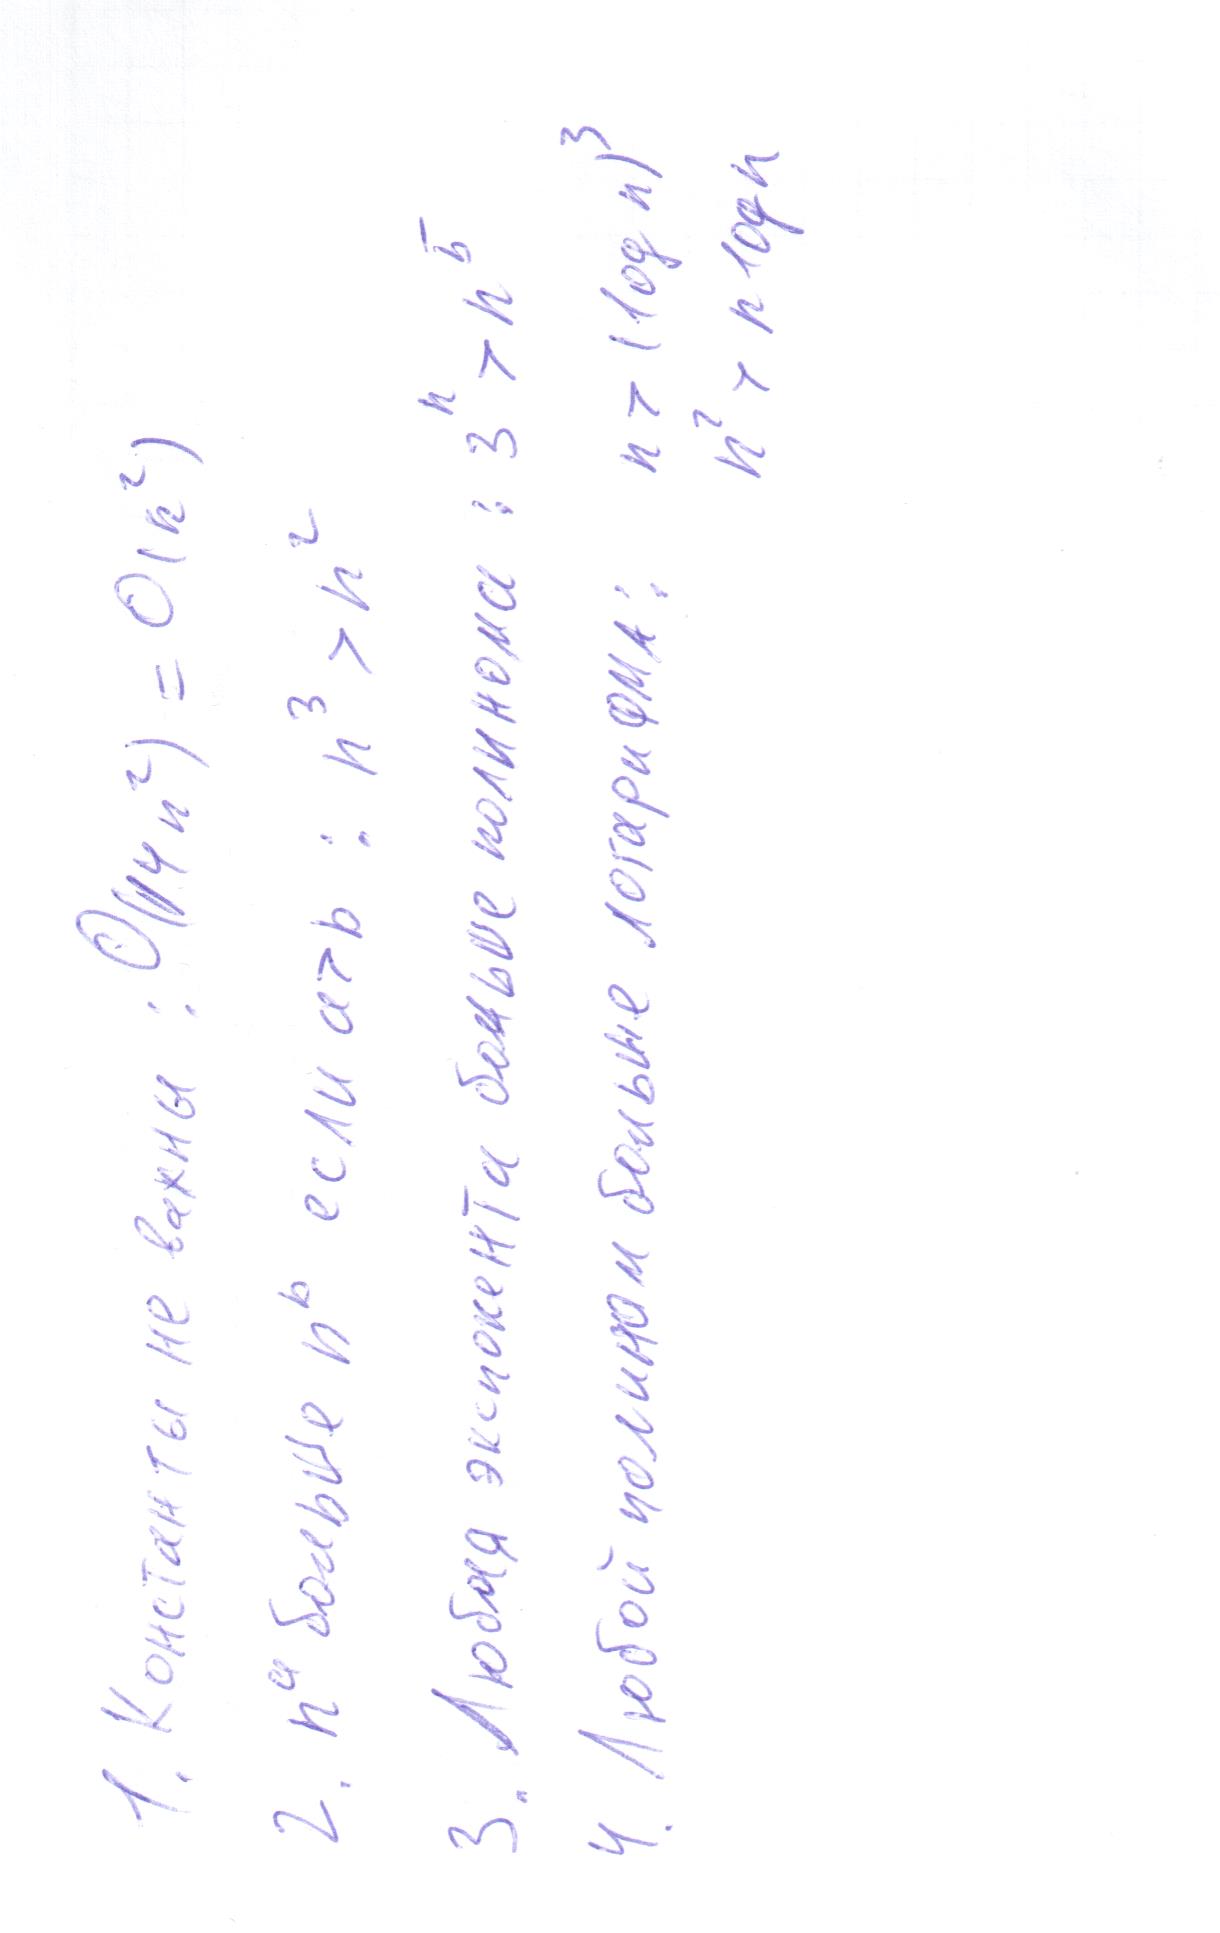 1. Константы не важны : O(14n²) = O(n²)
2. nᵃ больше nᵇ если a>b : n³ > n²
3. Любая экспонента больше полинома : 3ⁿ > n⁵
4. Любой полином больше логарифма: n > (log n)³
n² > n log n